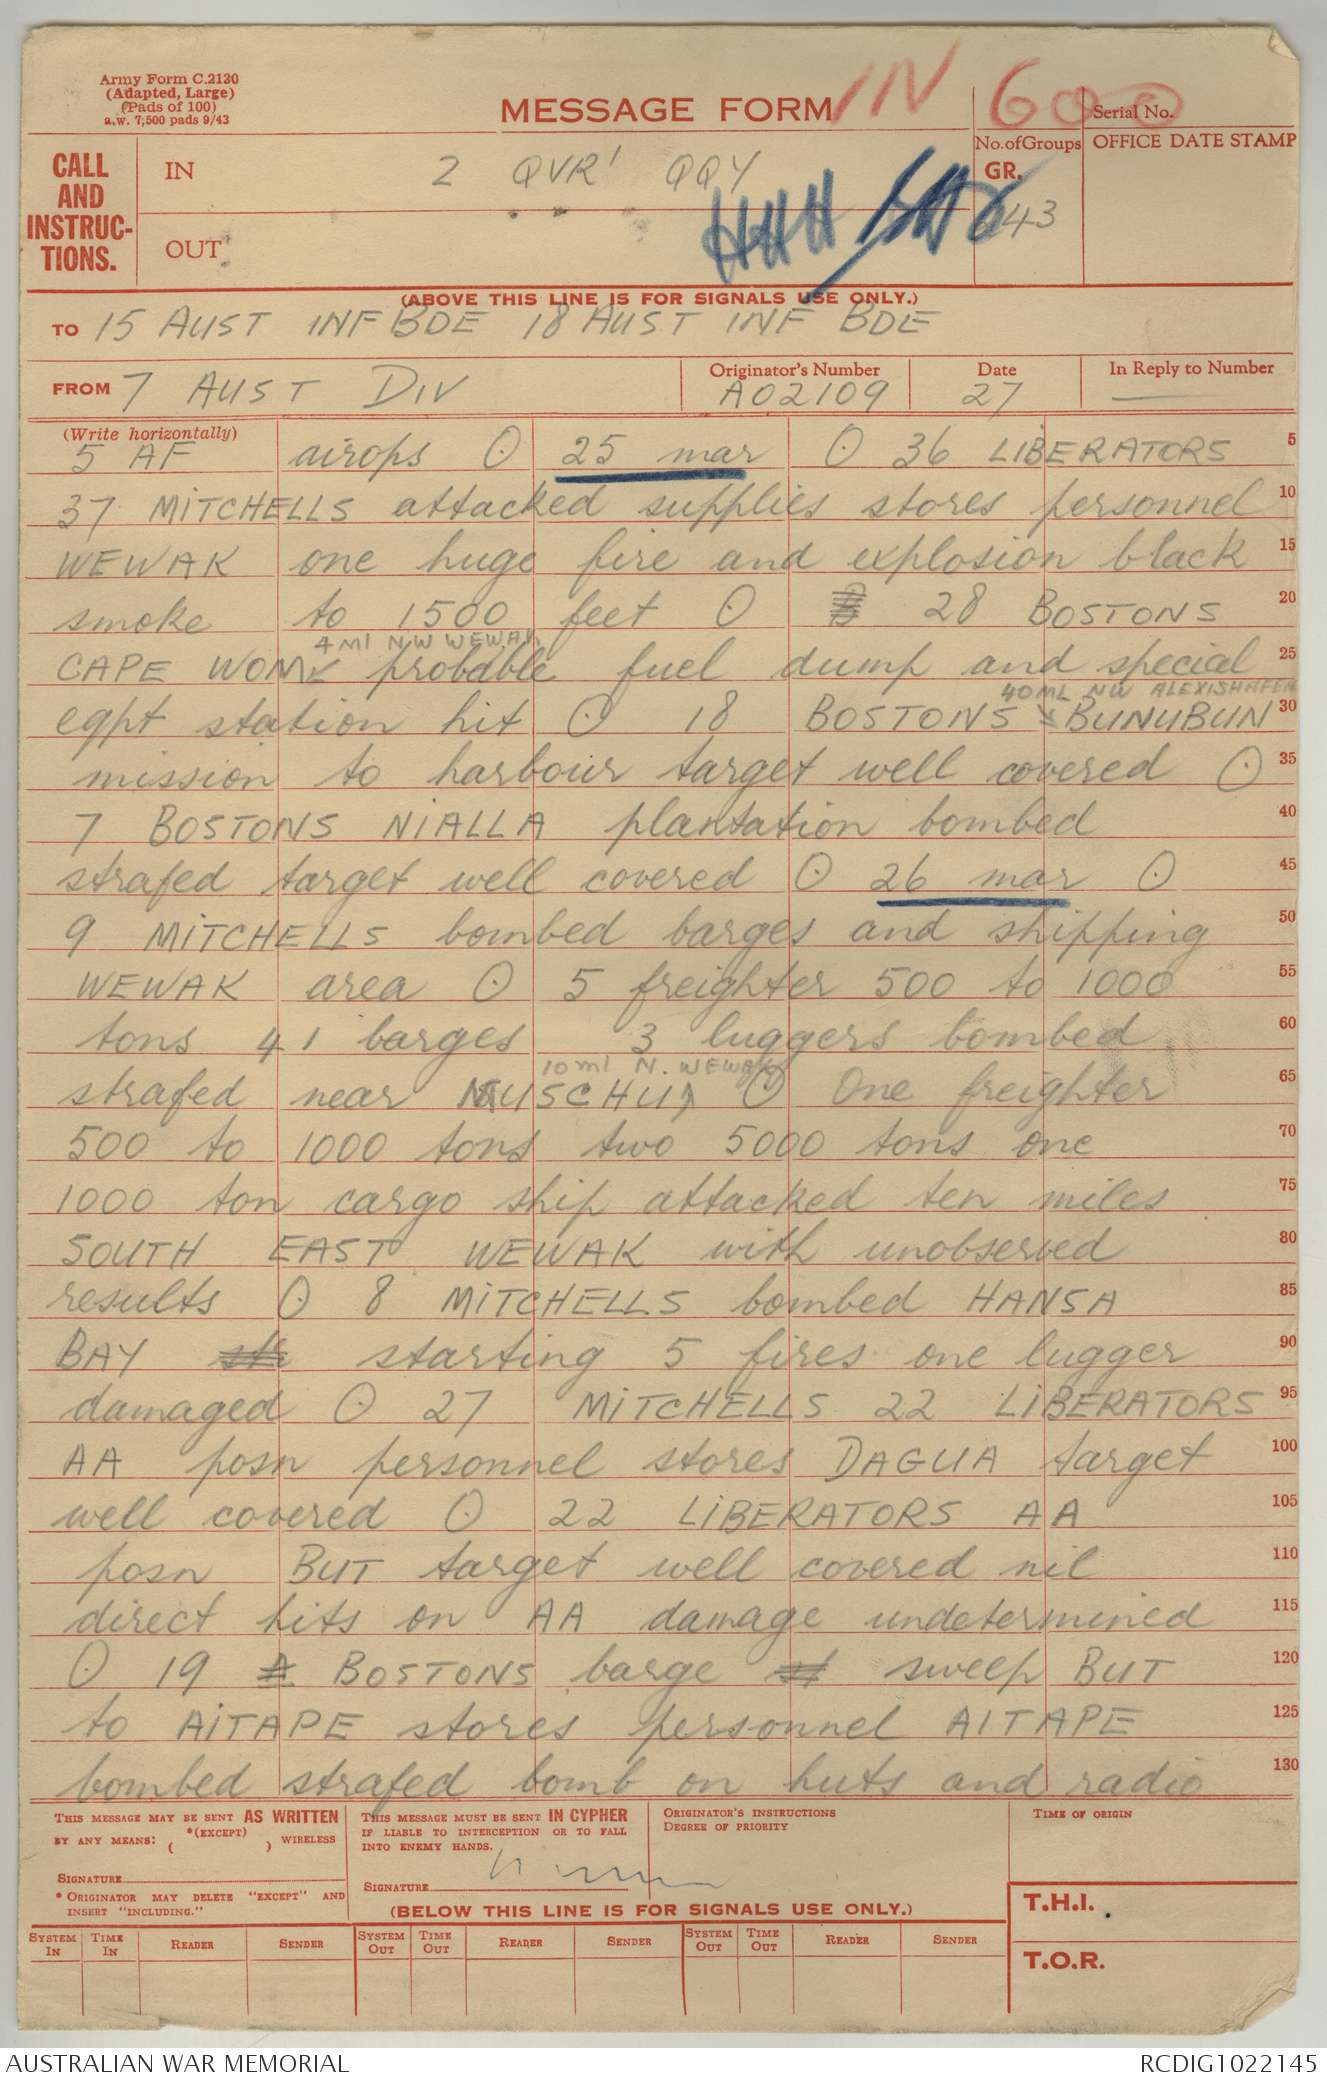 Army Form C.2130
(Adapted, Large)
(Pads of 100)
a.w. 7,500 pads 9/43
MESSAGE FORM
IN 600
Serial No.
CALL
AND
INSTRUC-
TIONS.
IN
2 QVR' QQY
No.ofGroups
GR.
643
OFFICE DATE STAMP
OUT
(ABOVE THIS LINE IS FOR SIGNALS USE ONLY.)
TO 15 AUST INF BDE 18 AUST INF BDE
FROM 7 AUST DIV
Originator's Number
A02109
Date
27
In Reply to Number
(Write horizontally)
5 AF airops O 25 mar O 36 LIBERATORS 5
37 MITCHELLS attacked supplies stores personnel 10
WEWAK one huge fire and explosion black 15
smoke to 1500 feet O 28 BOSTONS 20
4 Ml NW WEWAK
CAPE WOM probable fuel dump and special 25
40 ML NW ALEXISHAFEN
eqpt station hit O 18 BOSTONS BUNUBUN 30
mission to harbour target well covered O 35
7 BOSTONS NIALLA plantation bombed 40
strafed target well covered O 26 mar O 45
9 MITCHELLS bombed barges and shipping 50
WEWAK area O 5 freighter 500 to 1000 55
tons 41 barges 3 luggers bombed 60
10 ml N. WEWAK
strafed near MUSCHU O One freighter 65
500 to 1000 tons two 5000 tons one 70
1000 ton cargo ship attacked ten miles 75
SOUTH EAST WEWAK with unobserved 80
results O 8 MITCHELLS bombed HANSA 85
BAY str starting 5 fires one lugger 90
damaged O 27 MITCHELLS 22 LIBERATORS 95
AA posn personnel stores DAGUA target 100
well covered O 22 LIBERATORS AA 105
posn BUT target well covered nil 110
direct hits on AA damage undetermined 115
O 19 BOSTONS barge sweep BUT 120
to AITAPE stores personnel AITAPE 125
bombed strafed bomb on huts and radio 130
THIS MESSAGE MAY BE SENT AS WRITTEN
BY ANY MEANS: *(EXCEPT) ( ) WIRELESS
SIGNATURE
* ORIGINATOR MAY DELETE "EXCEPT" AND
INSERT "INCLUDING."
THIS MESSAGE MUST BE SENT IN CYPHER
IF LIABLE TO INTERCEPTION OR TO FALL
INTO ENEMY HANDS.
SIGNATURE
ORIGINATOR'S INSTRUCTIONS
DEGREE OF PRIORITY
TIME OF ORIGIN
(BELOW THIS LINE IS FOR SIGNALS USE ONLY.)
T.H.I.
T.O.R.
SYSTEM IN TIME IN READER SENDER SYSTEM OUT TIME OUT READER SENDER SYSTEM OUT TIME OUT READER SENDER
AUSTRALIAN WAR MEMORIAL
RCDIG1022145